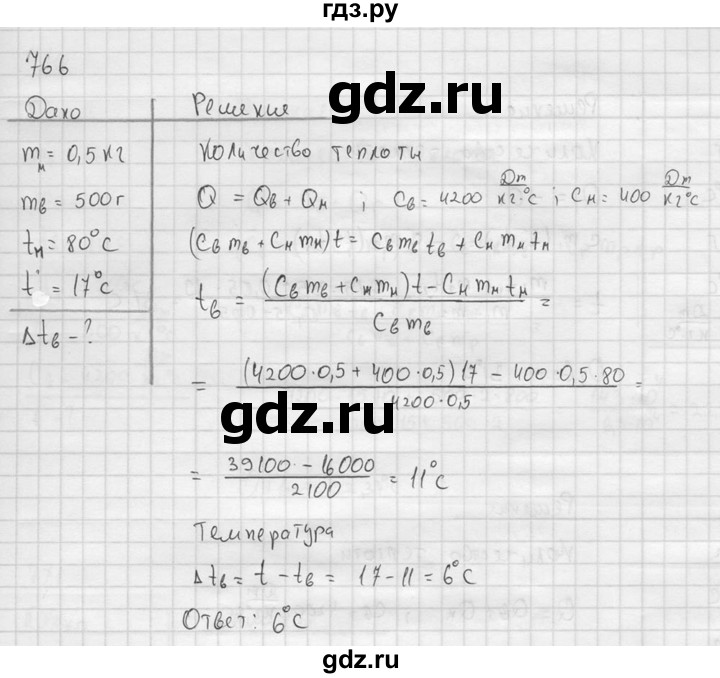 гдз.ру
766
Дано
mм = 0,5 кг
mв = 500 г
tм = 80°C
t = 17°C
Δtв - ?
Решение
Количество теплоты
Q = Qв + Qм ; Cв = 4200 Дж/кг·°C ; Cм = 400 Дж/кг°C
(Cв mв + Cм mм) t = Cв mв tв + Cм mм tм
tв = (Cв mв + Cм mм) t - Cм mм tм / Cв mв =
= (4200·0,5 + 400·0,5) 17 - 400·0,5·80 / 4200·0,5 =
gdz.ru
= 39100 - 16000 / 2100 = 11°C
Температура
Δtв = t - tв = 17 - 11 = 6°C
Ответ: 6°C
gdz.ru